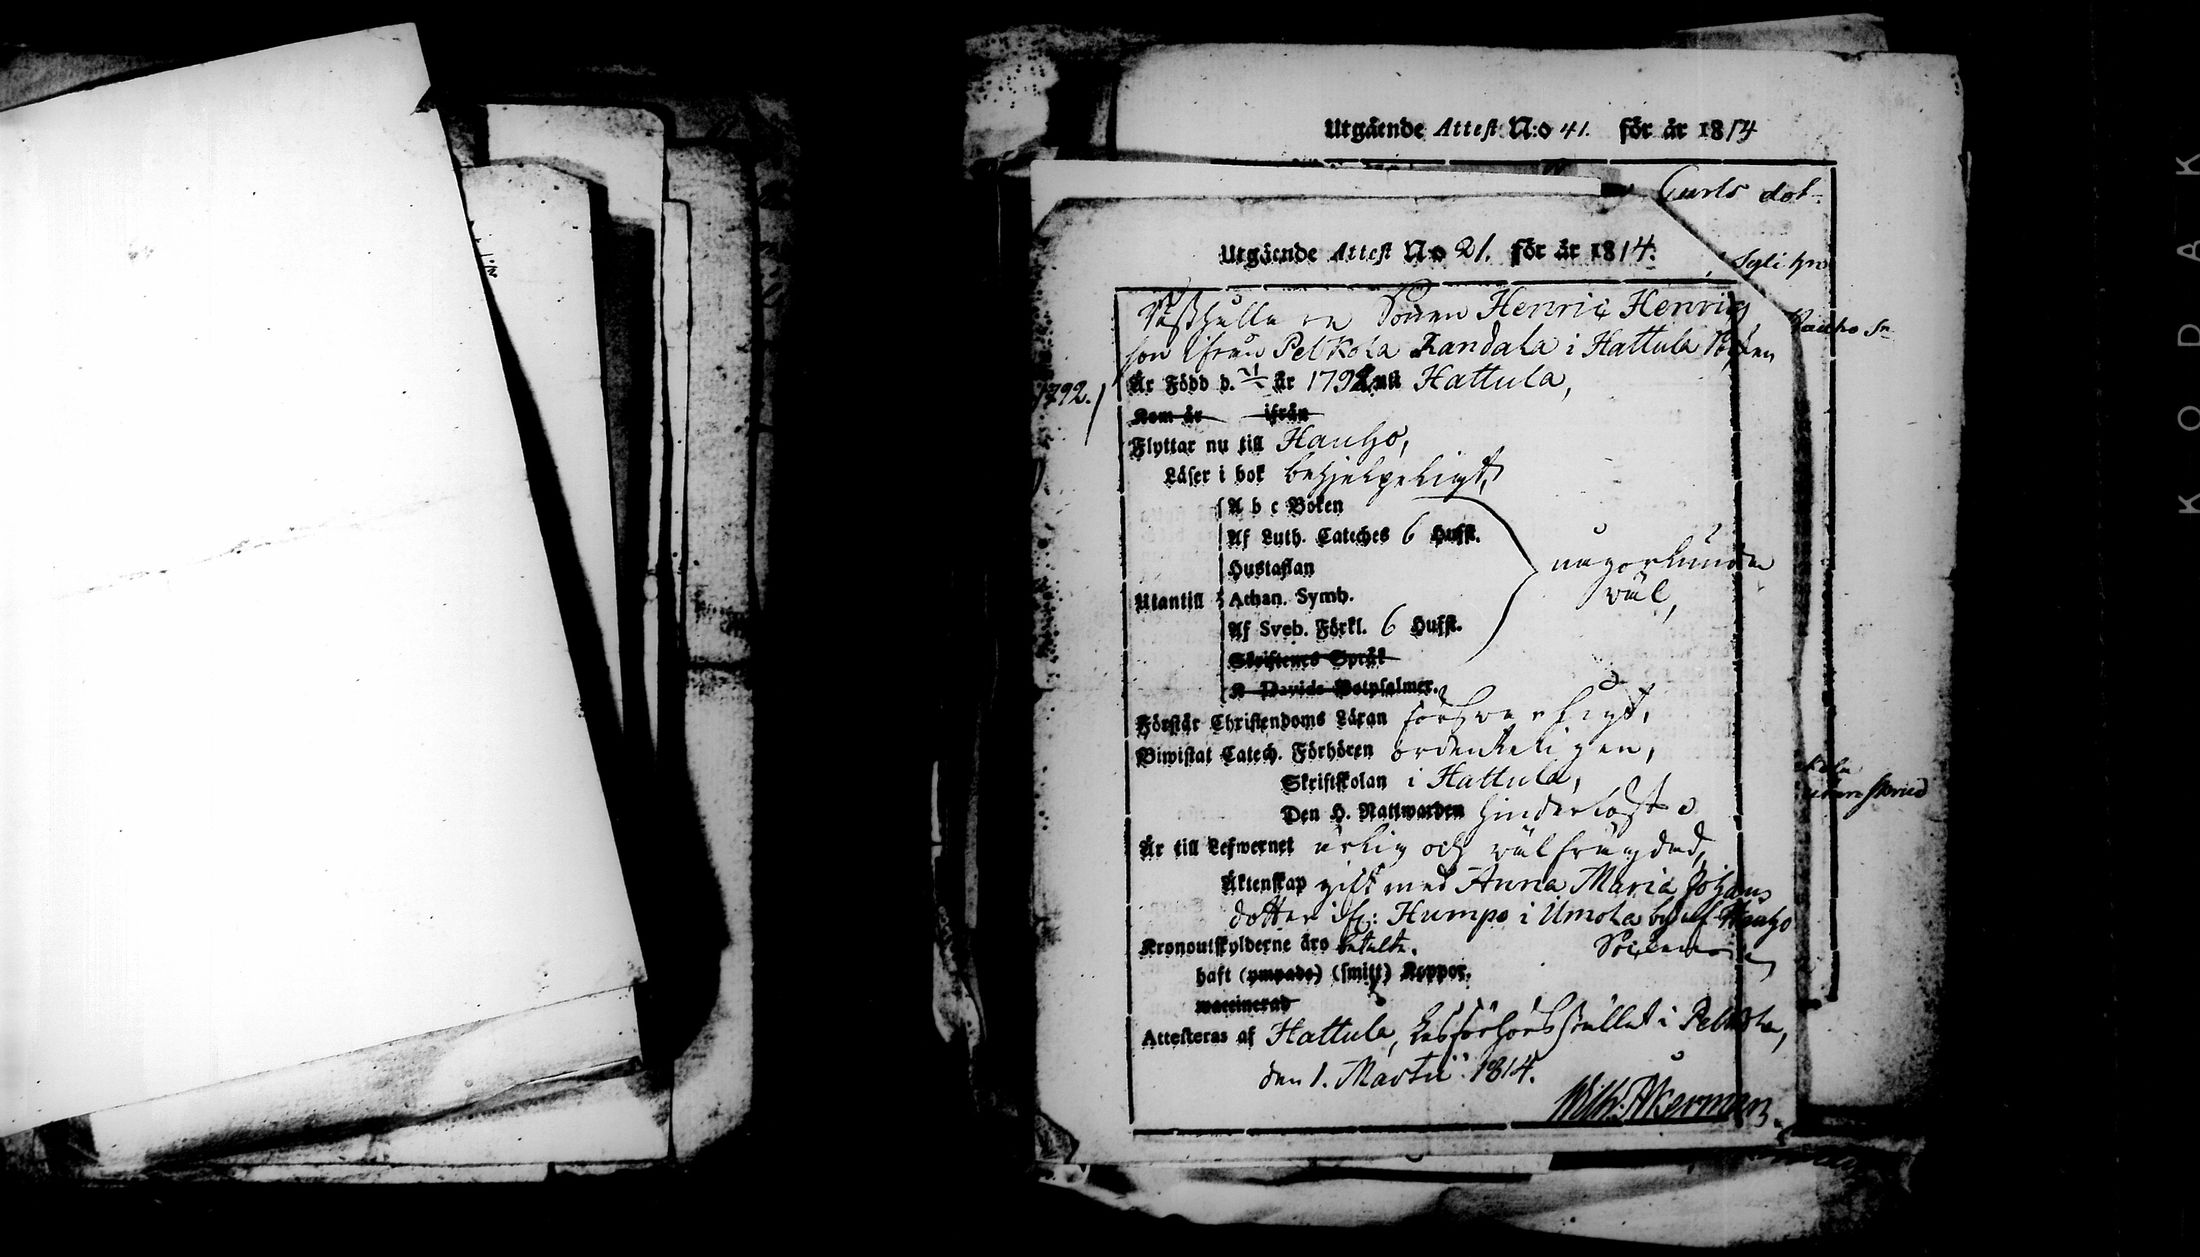 Utgående Attest N:o 41. för år 1814
Carls dot-
Utgående Attest N:o 21. för år 1814.
Sonen Henric Henrics
son ifrån Pelkola Randala i Hattula Socken
Är Född d. 1/1 år 1792 uti Hattula,
1792.
Kom år ifrån
Flyttar nu till Hauho,
Läser i bok behjelpeligt,
A b c Boken
Af Luth. Cateches 6 Hufst.
Hustaflan
Utantill Athan. Symb.
någorlunda
väl,
Af Sveb. Förkl. 6 Hufst.
Skriftenes Språk
K Davids Botpsalmer.
Förstår Christendoms Läran försvarligt,
Biwistat Catech. Förhören ordenteligen,
Skriftskolan i Hattula,
Den H. Nattwarden hinderlöst
Är till Lefwernet ärlig och välfrägdad,
Äktenskap gift med Anna Maria Johans
dotter ifr: Humpo i Umola by af Hauho
Socken
Kronoutskylderne äro betalte.
haft (ympade) (smitt) Koppor.
vaccinerad
Attesteras af Hattula, Läsförhörsstället i Pelkola,
den 1. Martii 1814.
Wilh: Åkerman.
KODAK